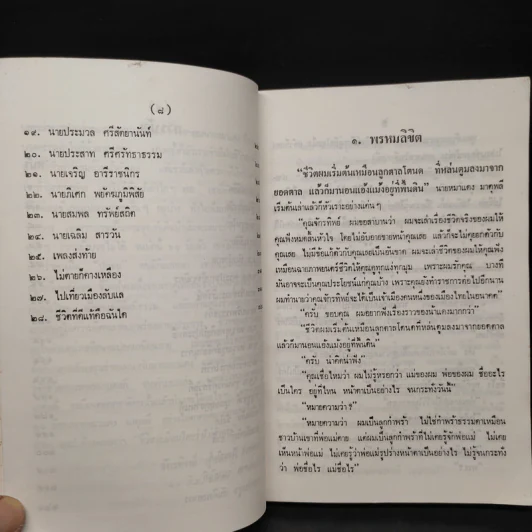 (๘)
๑๙. นายประมวล ศรีสัตยานันท์
๒๐. นายประสาท ศรีศรัทธาธรรม
๒๑. นายเจริญ อารีราชนิกร
๒๒. นายภิเศก พยัคฆภูมิพิสัย
๒๓. นายสมพล ทรัพย์สถิต
๒๔. นายเฉลิม สารวัน
๒๕. เพลงส่งท้าย
๒๖. ไม่ตายก็คางเหลือง
๒๗. ไปเที่ยวเมืองลับแล
๒๘. ชีวิตที่ดีแท้คือฉันใด
๑. พรหมลิขิต
“ชีวิตผมเริ่มต้นเหมือนลูกตาลโตนด ที่หล่นตูมลงมาจาก
ยอดตาล แล้วก็มานอนแอ้งแม้งอยู่ที่พื้นดิน” นายหมาแดง
เริ่มต้นเล่าแล้วก็หัวเราะอย่างแค่นๆ
“คุณจักรทิพย์ ผมขอสาบานว่า ผมจะเล่าเรื่องชีวิตจริงของผมให้
คุณฟังหมดเส้นหัวใจ โดยไม่อับอายขายหน้าคุณเลย แล้วก็จะไม่คุยอกตัวกับ
คุณเลย ไม่มีข้อแก้ตัวกับคุณเลยเป็นอันขาด ผมจะเล่าชีวิตของผมให้คุณฟัง
เหมือนฉายภาพยนตร์ชีวิตให้คุณดูทุกแง่ทุกมุม เพราะผมรักคุณ บางที
มันอาจจะเป็นคุณประโยชน์แก่คุณบ้าง เพราะคุณยังทำราชการต่อไปอีกนาน
ผมทำนายว่าคุณจักรทิพย์จะได้เป็นเจ้าเมืองคนหนึ่งของเมืองไทยในอนาคต”
“ครับ ขอบคุณ ผมอยากฟังเรื่องราวของน้าแดงมากกว่า”
“ชีวิตผมเริ่มต้นเหมือนลูกตาลโตนดที่หล่นตูมลงมาจากยอดตาล
แล้วก็มานอนแอ้งแม้งอยู่ที่พื้นดิน”
“ครับ น่าคิดน่าฟัง”
“คุณเชื่อไหมว่า ผมไม่รู้หรอกว่า แม่ของผม พ่อของผม ชื่ออะไร
เป็นใคร อยู่ที่ไหน หน้าตาเป็นอย่างไร จนกระทั่งวันนี้”
“หมายความว่า?”
“หมายความว่า ผมเป็นลูกกำพร้า ไม่ใช่กำพร้าธรรมดาเหมือน
ชาวบ้านเขาที่พ่อแม่ตาย แต่ผมเป็นลูกกำพร้าที่ไม่เคยรู้จักพ่อแม่ ไม่เคย
เห็นหน้าพ่อแม่ ไม่เคยรู้ว่าพ่อแม่รูปร่างหน้าตาเป็นอย่างไร ไม่รู้จนกระทั่ง
ว่า พ่อชื่อไร แม่ชื่อไร”